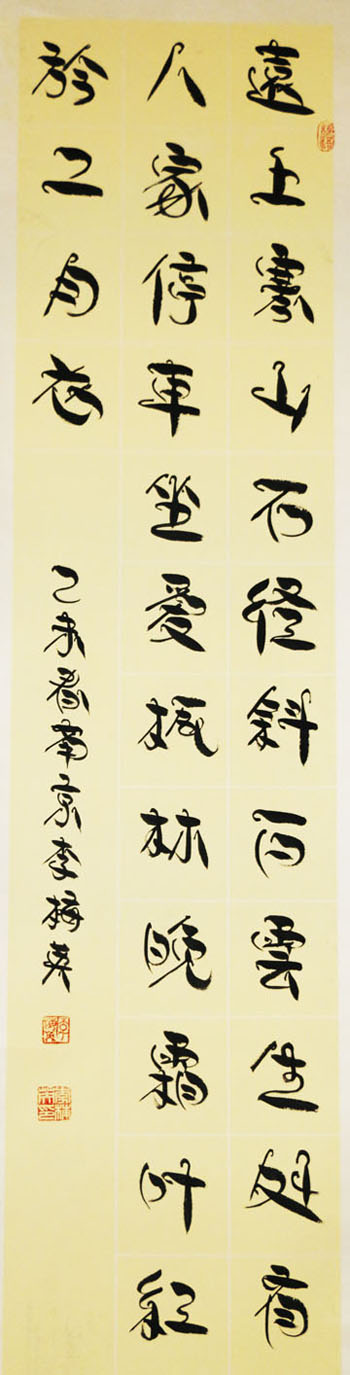 遠上寒山石徑斜白雲生処有
人家停車坐愛楓林晚霜叶紅
於二月花
乙未春南京李梅英